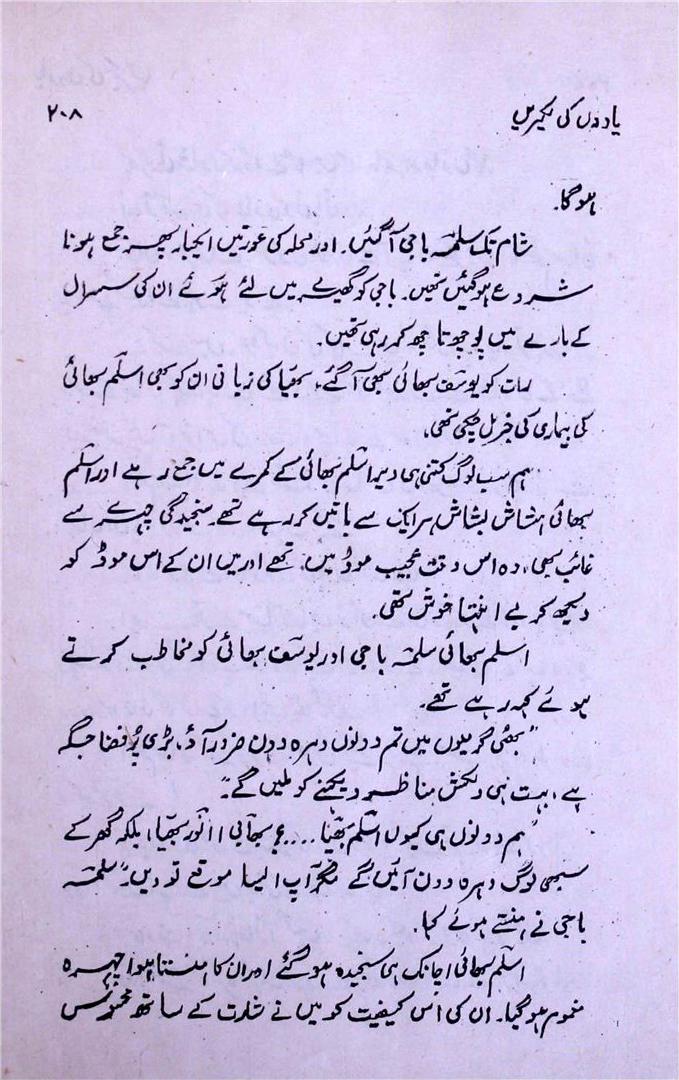 یادوں کی لکیریں ۲۰۸
ہوگا۔
شام تک سلمہ باجی آگئیں۔ اور محلہ کی عورتیں ایکبار پھر جمع ہونا
شروع ہوگئیں تھیں۔ باجی کو گھیرے میں لئے ہوئے ان کی سسرال
کے بارے میں پوچھ تاچھ کر رہی تھیں۔
رات کو یوسف بھائی بھی آگئے، بھیّا کی زبانی ان کو بھی اسلم بھائی
کی بیماری کی خبر مل چکی تھی،
ہم سب لوگ کتنی ہی دیر اسلم بھائی کے کمرے میں جمع رہے اور اسلم
بھائی ہشاش بشاش ہر ایک سے باتیں کر رہے تھے۔ سنجیدگی چہرے سے
غائب تھی، وہ اس وقت عجیب موڈ میں تھے اور میں ان کے اس موڈ کو
دیکھ کر بے انتہا خوش تھی
اسلم بھائی سلمہ باجی اور یوسف بھائی کو مخاطب کرتے
ہوئے کہہ رہے تھے۔
”بھئی گرمیوں میں تم دونوں دہرہ دون ضرور آؤ، بڑی پُرفضا جگہ
ہے، بہت ہی دلکش مناظر دیکھنے کو ملیں گے۔“
”ہم دونوں ہی کیوں اسلم بھیّا....؟ بھابی! انور بھیّا، بلکہ گھر کے
سبھی لوگ دہرہ دون آئیں گے مگر آپ ایسا موقع تو دیں۔“ سلمہ
باجی نے ہنستے ہوئے کہا۔
اسلم بھائی اچانک ہی سنجیدہ ہوگئے اور ان کا ہنستا ہوا چہرہ
مغموم ہوگیا۔ ان کی اس کیفیت کو میں نے شدّت کے ساتھ محسوس